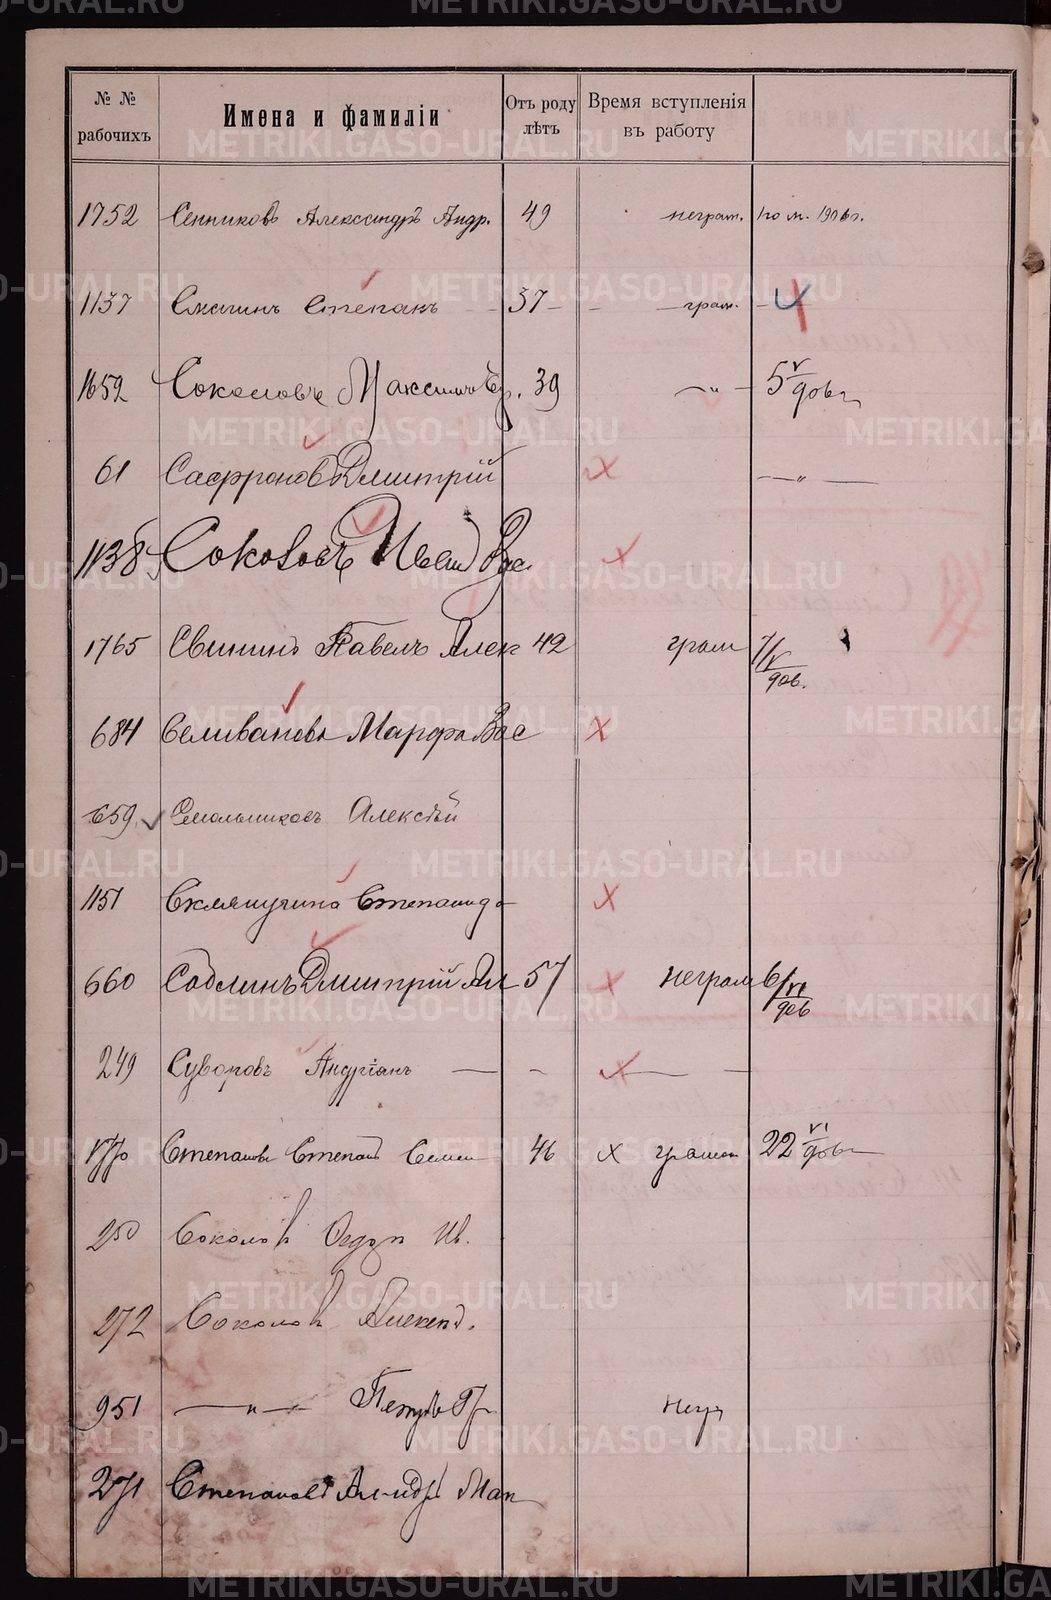 № № рабочихъ Имена и фамиліи Отъ роду лѣтъ Время вступленія въ работу
1752 Сенниковъ Александръ Андр. 49 неграм. по м. 1906 г.
1137 Смагинъ Степанъ 37 – – грам. –
1659 Соколовъ Максимъ 39 – " – 5 V довъ
61 Сафроновъ Дмитрій х – " –
1138 Соколовъ Иванъ Вас. х
1765 Свининъ Павелъ Алек 42 грам 7/V дов.
684 Селиванова Марфа Вас х
659 Смольниковъ Алексѣй
1151 Степанида х
660 Дмитрій Ал 57 х неграм 6/VI дов
249 Суворовъ Андріанъ — – х — –
1770 Степановъ Степанъ Семен 46 х грамот 22 VI довъ
250 Соколов Федор Ив.
272 Соколов Александ.
951 — " — Петръ Гр. негр
271 Степановъ Ал-ндръ Мат
METRIKI.GASO-URAL.RU